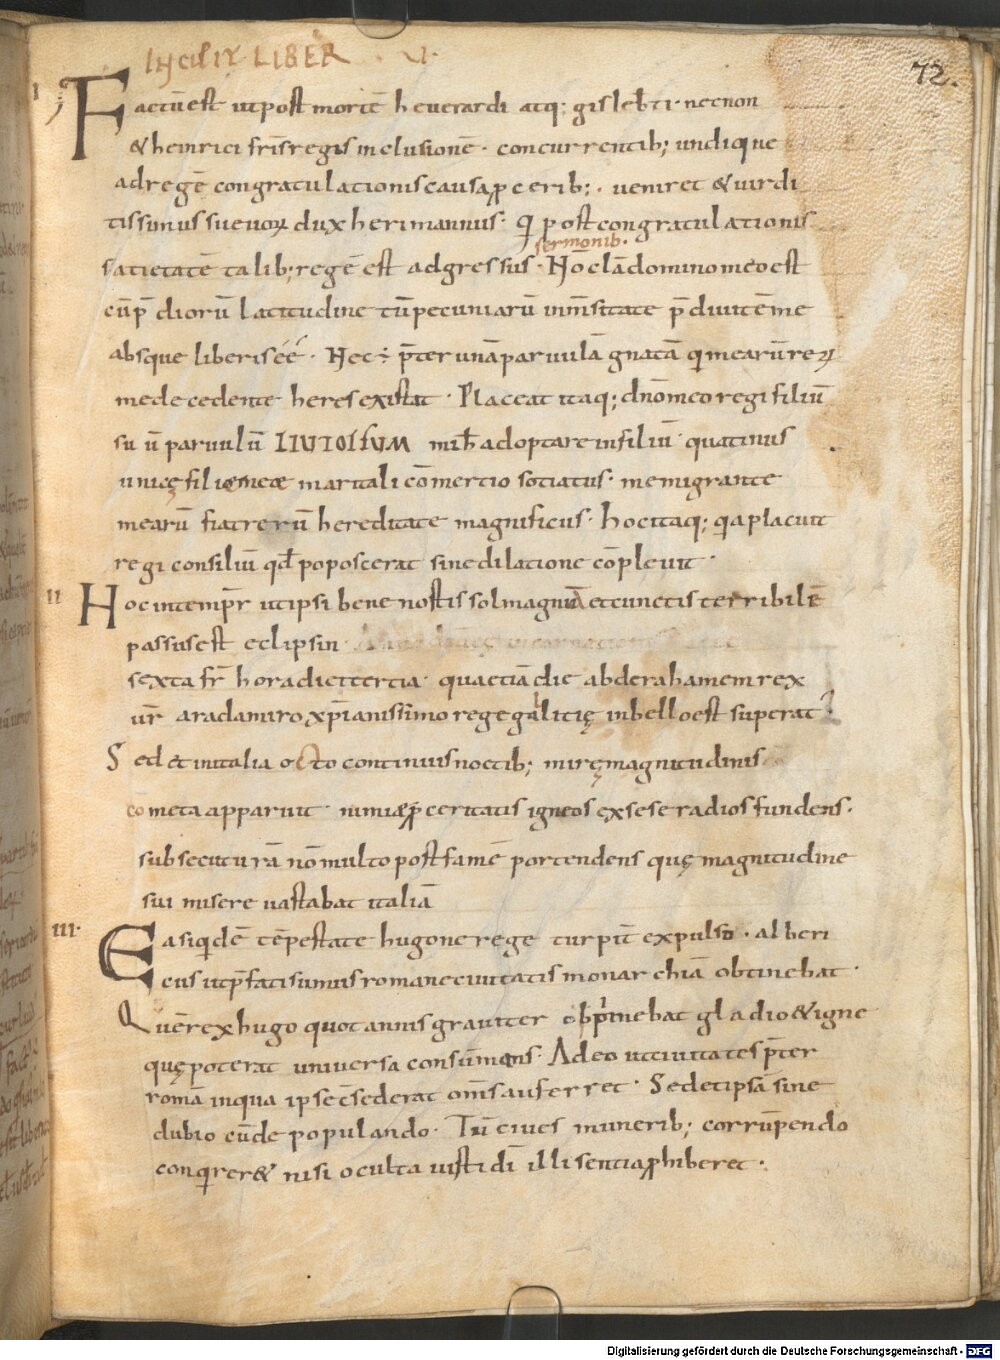 INCIPIT LIBER · V·
72.
I
Factū est ut post mortē heverardi atq; gislebti· necnon
& heinrici fr̄is regis inclusionē· concurrentib; undique
ad regē congratulationis causa ꝓcerib;· veniret & vir di
tissimus suevoꝝ dux herimannus· Qi post congratulationis
sermonib·
satietatē talib; regē est adgressus· Nō clā domino meo est
cū p̄diorū latitudine tū pecuniarū inm̄sitate p̄divitē me
absque liberis éé· Nec ÷ p̄ter unā parvulā gnatā qi mearū reꝝ
me decedente heres existat· Placeat itaq; dn̄o meo regi filiū
suū parvulū LIUTOLFUM mih adoptare in filiū· quatinus
unicę filię meae maritali cōmertio sotiatus· me migrante
mearū fiat rerū hereditate magnificus· Hoc itaq; qia placuit
regi consiliū qd̄ poposcerat sine dilatione cōplevit·
II
Hoc in tempr̄ ut ipsi bene nostis sol magnā et cunctis terribilē
passus est eclipsin·
sexta fr̄ hora diei tertia· qua etiā die abderahamem rex
ur̄ a radamiro xp̄ianissimo rege gallitię in bello est superat·
Sed et in italia octo continuis noctib; mirę magnitudinis
cometa apparuit· nimiae ꝓceritatis igneos ex sese radios fundens·
subsecuturā nō multo post famē portendens quę magnitudine
sui misere vastabat italiā
III·
Ea siqidē tēpestate hugone rege turpit̄ expulso· alberi
cus ut p̄fati sumus romane civitatis monarchiā obtinebat·
Quē rex hugo quotannis graviter obp̄mebat gladio & igne
quę poterat universa consumens· Adeo ut civitates p̄ter
romā in qua ipse cōsederat om̄s auferret· Sed et ipsā sine
dubio cū de populando· Tū cives munerib; corrūpendo
conqirer& nisi occulta iusti dī illi sentia ꝓhiberet·
Digitalisierung gefördert durch die Deutsche Forschungsgemeinschaft - DFG